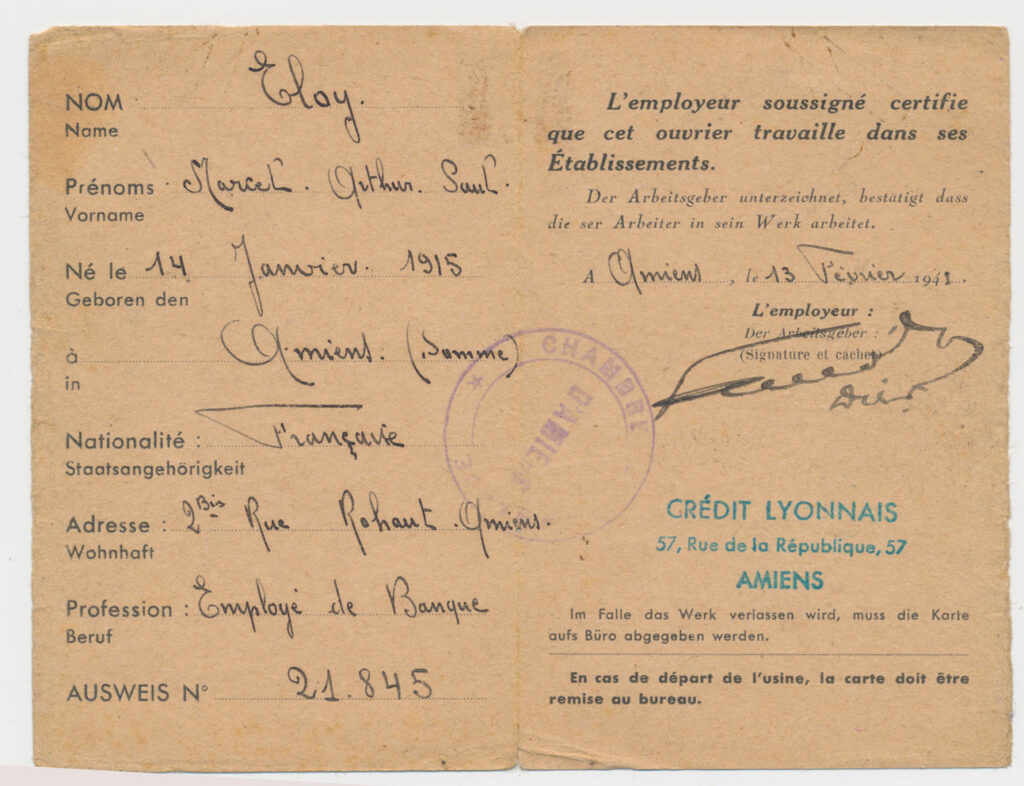 NOM Eloy.
Name
Prénoms Marcel. Arthur.
Vorname
Né le 14 Janvier. 1915
Geboren den
à Amiens. (Somme)
in
Nationalité : Française
Staatsangehörigkeit
Adresse : 2 Bis Rue Rohaut. Amiens.
Wohnhaft
Profession : Employé de Banque
Beruf
AUSWEIS N° 21.845
CHAMBRE
D'AMIENS
L'employeur soussigné certifie
que cet ouvrier travaille dans ses
Établissements.
Der Arbeitsgeber unterzeichnet, bestätigt dass
die ser Arbeiter in sein Werk arbeitet.
A Amiens, le 13 Février
L'employeur :
Der Arbeitsgeber :
(Signature et cachet)
CRÉDIT LYONNAIS
57, Rue de la République, 57
AMIENS
Im Falle das Werk verlassen wird, muss die Karte
aufs Büro abgegeben werden.
En cas de départ de l'usine, la carte doit être
remise au bureau.